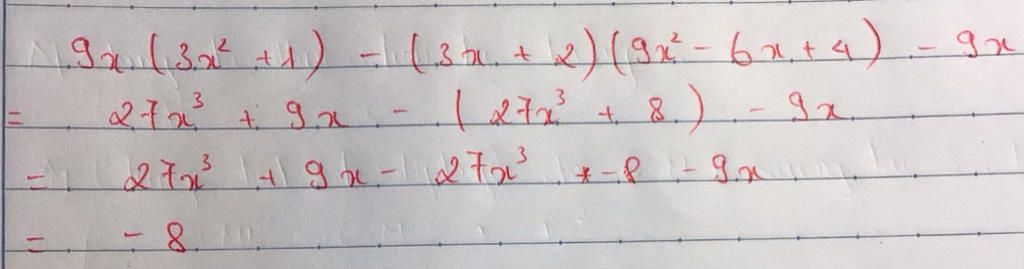 9x (3x² + 1) - (3x + 2)(9x² - 6x + 4) - 9x
= 27x³ + 9x - (27x³ + 8) - 9x
= 27x³ + 9x - 27x³ - 8 - 9x
= - 8